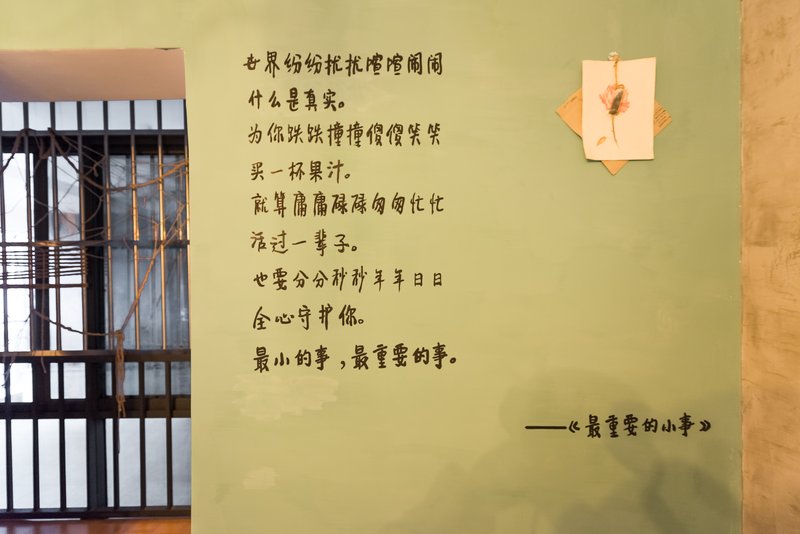 世界纷纷扰扰喧喧闹闹
什么是真实。
为你跌跌撞撞傻傻笑笑
买一杯果汁。
就算庸庸碌碌匆匆忙忙
活过一辈子。
也要分分秒秒年年日日
全心守护你。
最小的事,最重要的事。
——《最重要的小事》